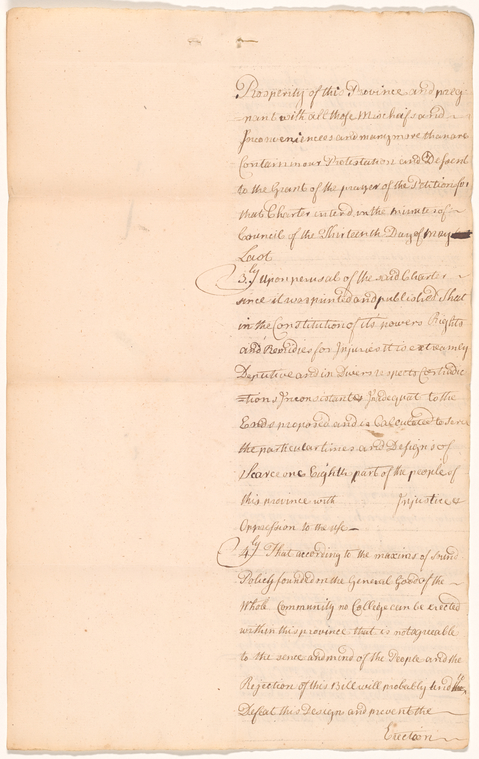 Prosperity of this Province and preg
nant with all those Mischiefs and
Inconveniencees and many more than are
Contain in our Protestation and Dissent
to the Grant of the prayer of the Petition for
that Charter enterd in the minutes of
Council of the Thirteenth Day of May
Last
3ly Upon perusal of the said Charter
since it was printed and published That
in the Constitution of its powers Rights
and Remidies for Injuries it is extreamly
Defective and in Divers respects Contradic
=tions Inconsistant Inadequat to the
Ends proposed and is Calculated to serve
the particular times and Designs of
scarce one Eighth part of the people of
this province with Injustice &
Oppression to the
4ly That according to the maxims of sound
Policy founded in the General Good of the
Whole Community no College can be erected
within this province that is not agreable
to the sence and mind of the People and the
Rejection of this Bill will probably tend
Defeat this Design and prevent the
Erection